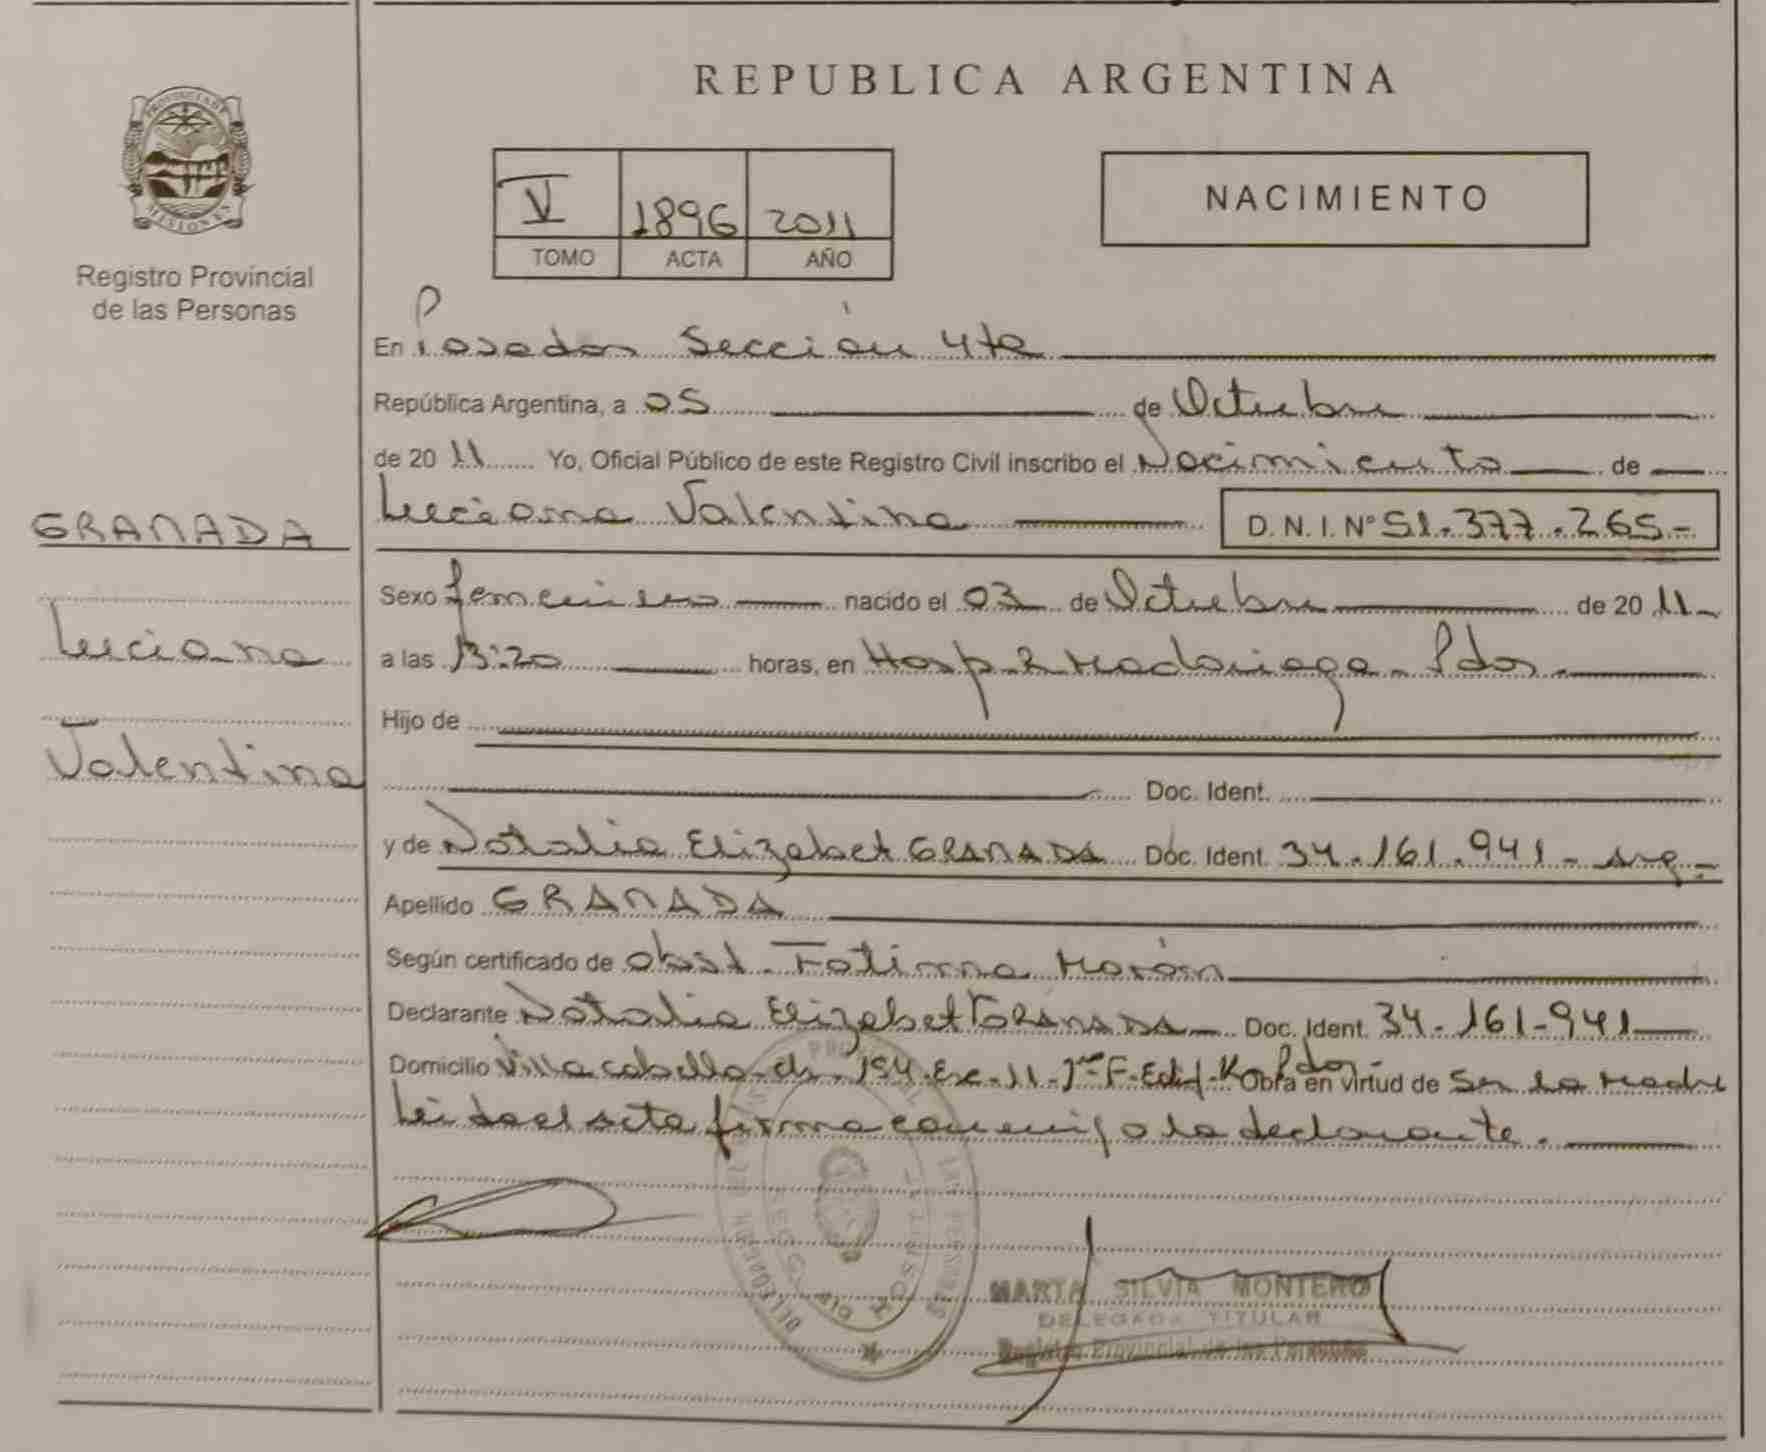 REPUBLICA ARGENTINA
PROVINCIA DE
MISIONES
Registro Provincial
de las Personas
V 1896 2011
TOMO ACTA AÑO
NACIMIENTO
En Posadas Sección 4ta
República Argentina, a 05 de Octubre
de 20 11 Yo, Oficial Público de este Registro Civil inscribo el Nacimiento de
Luciana Valentina D.N.I. Nº 51.377.265-
GRANADA
Luciana
Valentina
Sexo femenino nacido el 03 de Octubre de 20 11
a las 13:20 horas, en Hosp R Madariaga - Pdas.
Hijo de
Doc. Ident.
y de Natalia Elizabet GRANADA Doc. Ident. 34.161.941 - arg.-
Apellido GRANADA
Según certificado de obst. Fatima Morán
Declarante Natalia Elizabet GRANADA Doc. Ident. 34.161.941
Domicilio Villa cabello ch. 154 Esc. 11 - 1 F - Edif. K - Pdas - Obra en virtud de Ser La Madre
Leida el acta firma conmigo la declarante.
MARTA SILVIA MONTERO
DELEGADA TITULAR
Registro Provincial de las Personas